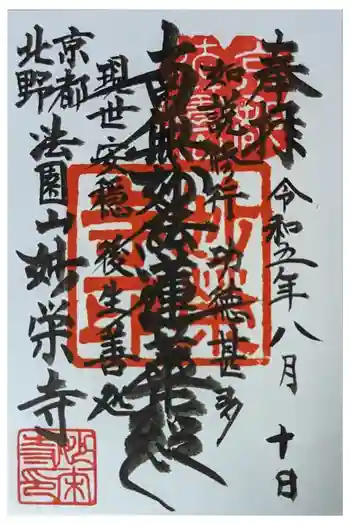 奉拝
令和五年八月十日
如説修行 功徳甚多
南無妙法蓮華経
現世安穏 後生善処
京都
北野
法園山 妙栄寺